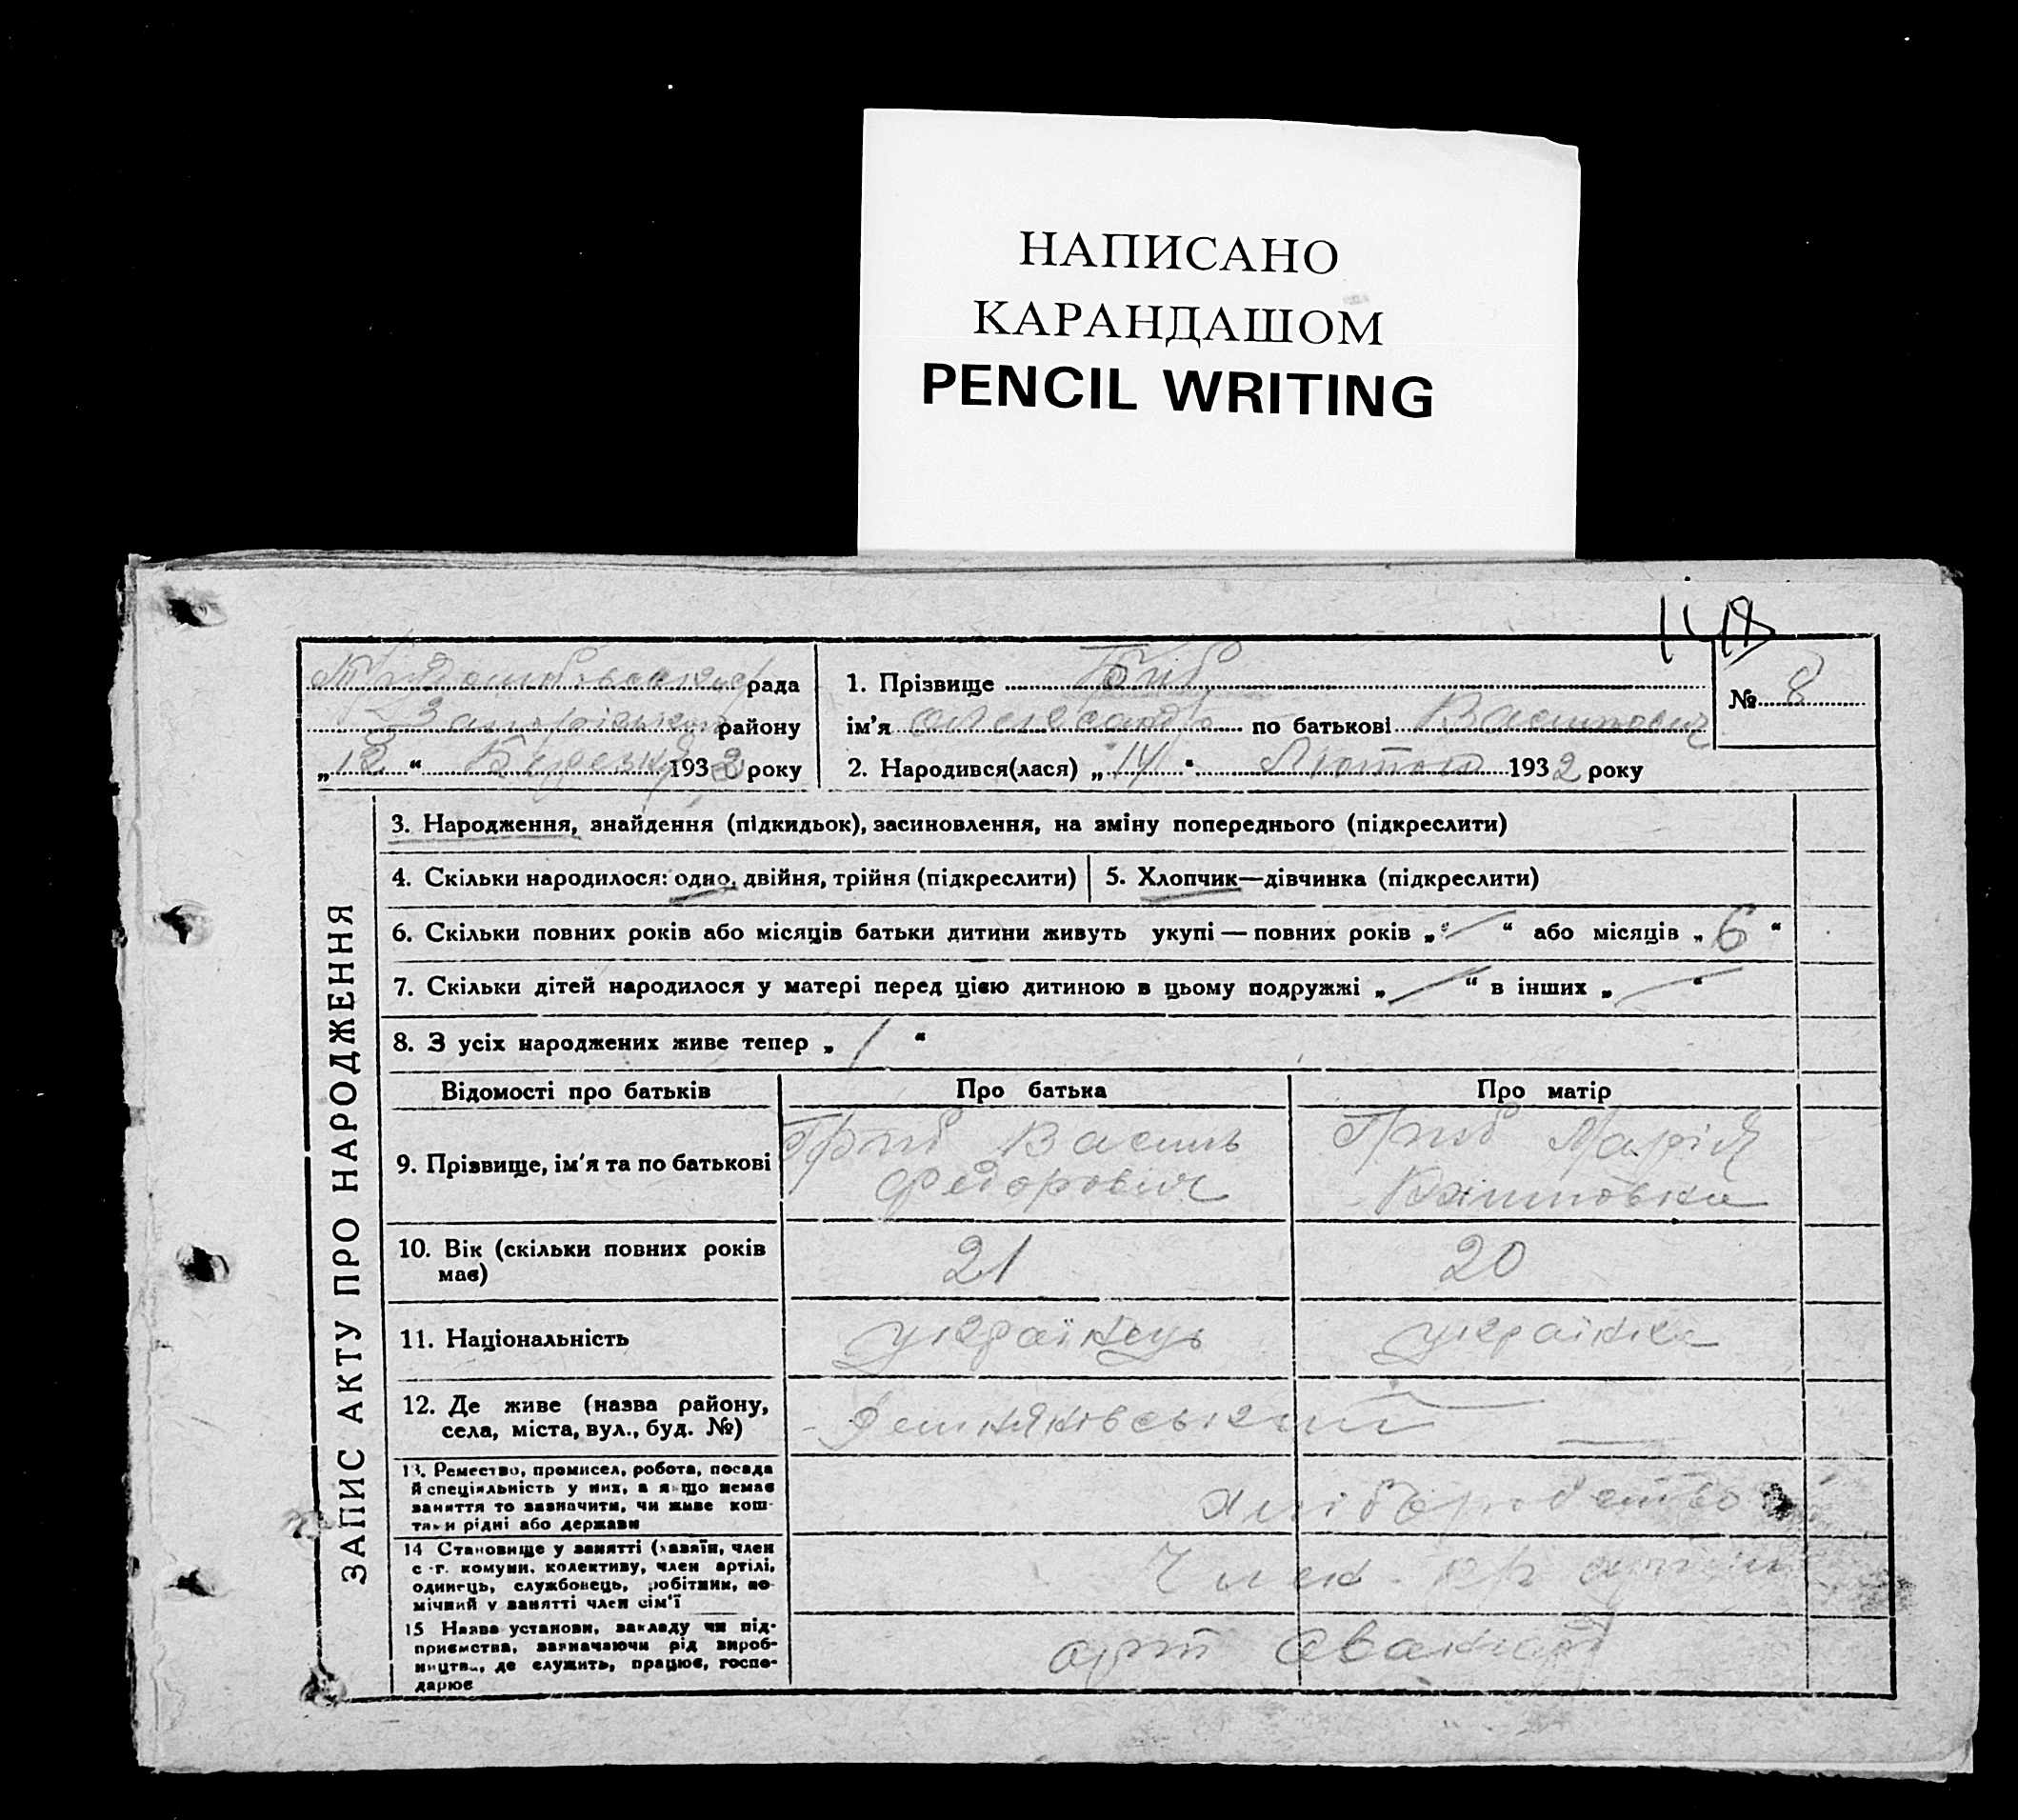 НАПИСАНО
КАРАНДАШОМ
PENCIL WRITING
148
рада
району
„12“ Березня 1932 року
1. Прізвище Гриб
ім’я Олександр по батькові Васильович
№ 8
2. Народився(лася) „14“ Лютого 1932 року
ЗАПИС АКТУ ПРО НАРОДЖЕННЯ
3. Народження, знайдення (підкидьок), засиновлення, на зміну попереднього (підкреслити)
4. Скільки народилося: одно, двійня, трійня (підкреслити)
5. Хлопчик—дівчинка (підкреслити)
6. Скільки повних років або місяців батьки дитини живуть укупі — повних років „—“ або місяців „6“
7. Скільки дітей народилося у матері перед цією дитиною в цьому подружжі „—“ в інших „—“
8. З усіх народжених живе тепер „/“
Відомості про батьків
Про батька
Про матір
9. Прізвище, ім’я та по батькові
Гриб Василь
Федорович
Гриб Марія
10. Вік (скільки повних років
має)
21
20
11. Національність
українець
українка
12. Де живе (назва району,
села, міста, вул., буд. №)
13. Ремество, промисел, робота, посада
й спеціяльність у них, а якщо немає
заняття то зазначити, чи живе кош-
тами рідні або держави
хліборобство
14 Становище у занятті (хазяїн, член
с.-г. комуни, колективу, член артілі,
одинець, службовець, робітник, по-
мічний у занятті член сім’ї
Член
15 Назва установи, закладу чи під-
приємства, зазначаючи рід вироб-
ництва, де служить, працює, госпо-
дарює
арт Авангард